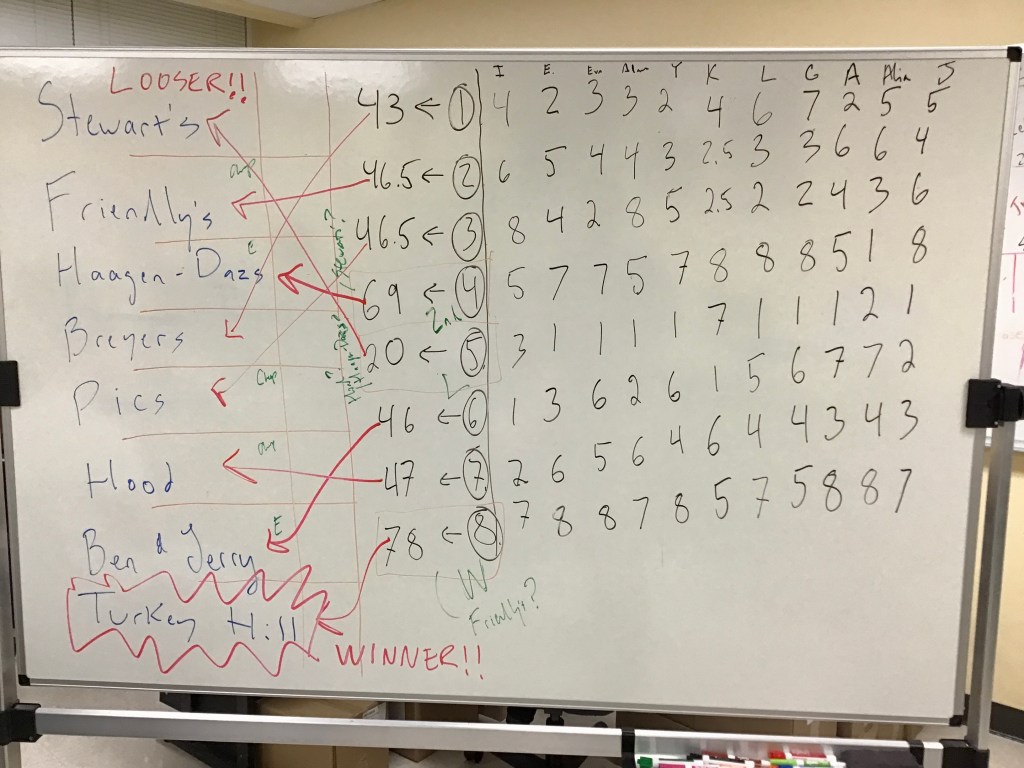 LOOSER!!
I E. Em Alan Y K L G A Alin J
Stewart's 43 ← 1 4 2 3 3 2 4 6 7 2 5 5
Friendly's 46.5 ← 2 6 5 4 4 3 2.5 3 3 6 6 4
46.5 ← 3 8 4 2 8 5 2.5 2 2 4 3 6
E
Haagen-Dazs 69 ← 4 5 7 7 5 7 8 8 8 5 1 8
2nd
Breyers 20 ← 5 3 1 1 1 1 7 1 1 1 2 1
L
Pics 46 ← 6 1 3 6 2 6 1 5 6 7 7 2
Hood 47 ← 7 2 6 5 6 4 6 4 4 3 4 3
E
Ben & Jerry 78 ← 8 7 8 8 7 8 5 7 5 8 8 7
W
Friendlys?
Turkey Hill
WINNER!!